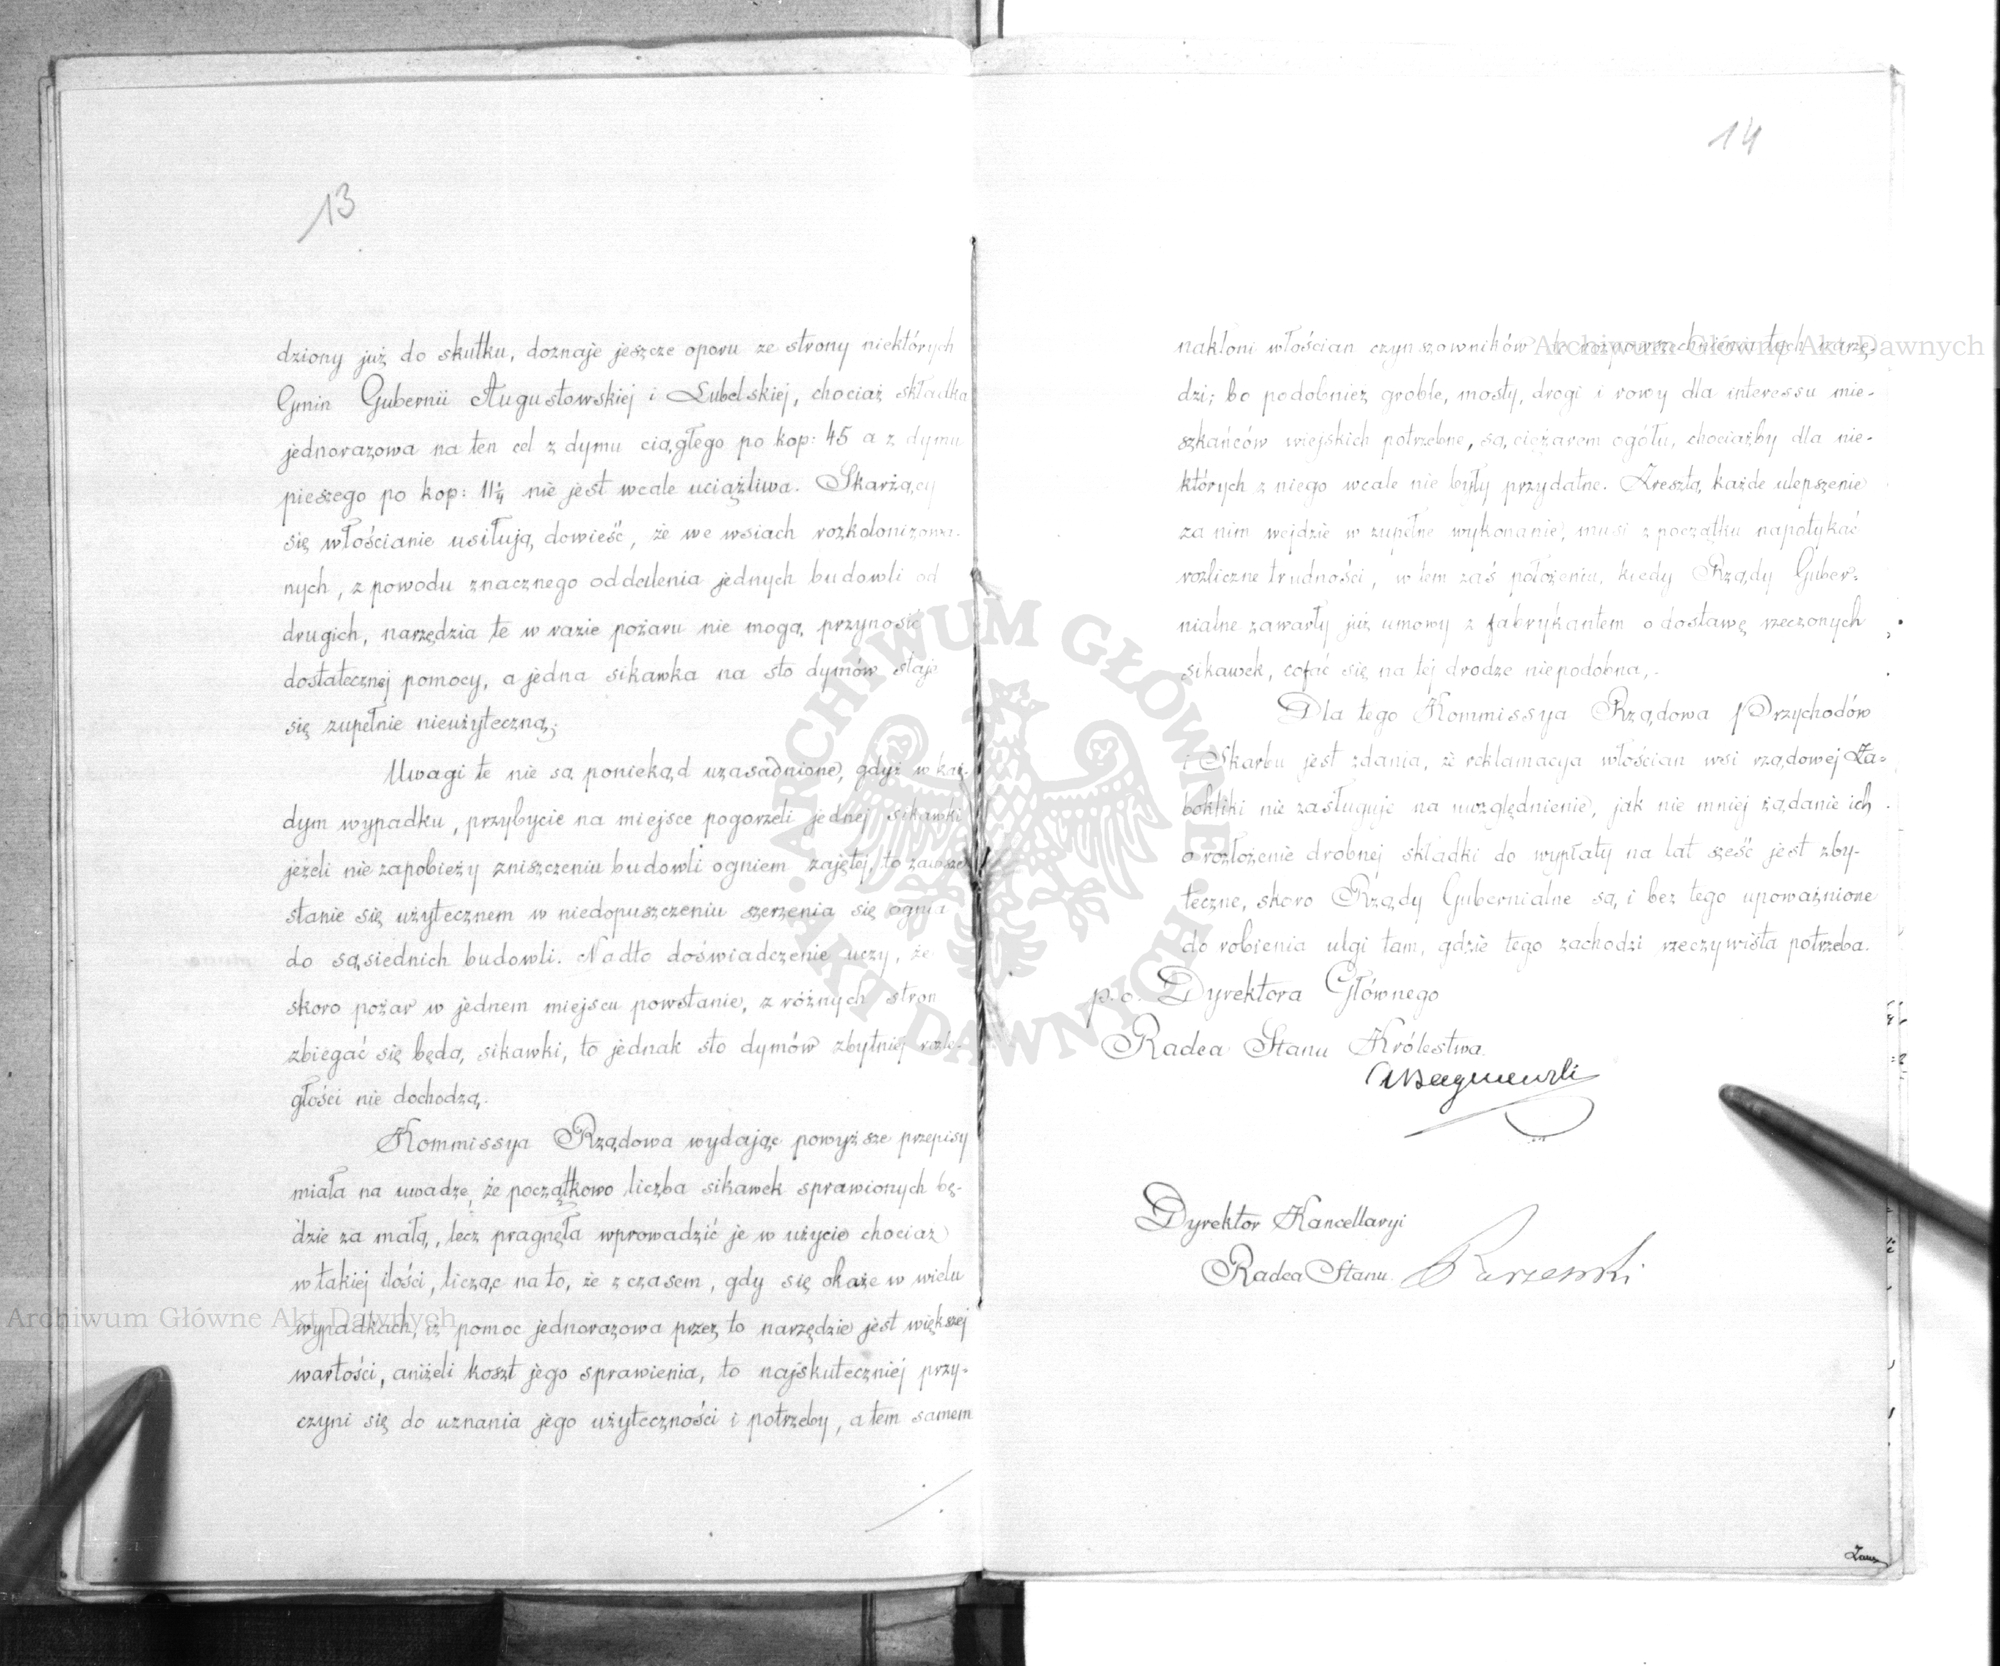 13
dziony już do skutku, doznaje jeszcze oporu ze strony niektórych
Gmin Gubernii Augustowskiej i Lubelskiej, chociaż składka
jednorazowa na ten cel z dymu ciągłego po kop: 45 a z dymu
pieszego po kop: 11¼ nie jest wcale uciążliwa. Skarżący
się włościanie usiłują dowieść, że we wsiach rozkolonizowa-
nych, z powodu znacznego oddalenia jednych budowli od
drugich, narzędzia te w razie pożaru nie mogą przynosić
dostatecznej pomocy, a jedna sikawka na sto dymów staje
się zupełnie nieużyteczną;
Uwagi te nie są poniekąd uzasadnione, gdyż w każ-
dym wypadku, przybycie na miejsce pogorzeli jednej sikawki
jeżeli nie zapobieży zniszczeniu budowli ogniem zajętej, to zawsze
stanie się użytecznem w niedopuszczeniu szerzenia się ognia
do sąsiednich budowli. Nadto doświadczenie uczy, że
skoro pożar w jednem miejscu powstanie, z różnych stron
zbiegać się będą sikawki, to jednak sto dymów zbytniej rozle-
głości nie dochodzą.
Kommissya Rządowa wydając powyższe przepisy
miała na uwadze, że początkowo liczba sikawek sprawionych bę-
dzie za małą, lecz pragnęła wprowadzić je w użycie chociaż
w takiej ilości, licząc na to, że z czasem, gdy się okaże w wielu
wypadkach, iż pomoc jednorazowa przez to narzędzie jest większej
wartości, aniżeli koszt jego sprawienia, to najskuteczniej przy-
czyni się do uznania jego użyteczności i potrzeby, a tem samem
14
nakłoni włościan czynszowników do rozpowszechnienia tych narzę-
dzi; bo podobnież groble, mosty, drogi i rowy dla interessu mie-
szkańców wiejskich potrzebne, są ciężarem ogółu, chociażby dla nie-
których z niego wcale nie były przydatne. Zresztą, każde ulepszenie
za nim wejdzie w zupełne wykonanie, musi z początku napotykać
rozliczne trudności, w tem zaś położeniu, kiedy Rządy Guber-
nialne zawarły już umowy z fabrykantem o dostawę rzeczonych
sikawek, cofać się na tej drodze niepodobna.
Dla tego Kommissya Rządowa Przychodów
i Skarbu jest zdania, że reklamacya włościan wsi rządowej Za-
bokliki nie zasługuje na uwzględnienie, jak nie mniej żądanie ich
o rozłożenie drobnej składki do wypłaty na lat sześć jest zby-
teczne, skoro Rządy Gubernialne są i bez tego upoważnione
do robienia ulgi tam, gdzie tego zachodzi rzeczywista potrzeba.
p.o. Dyrektora Głównego
Radca Stanu Królestwa
Dyrektor Kancellaryi
Radca Stanu
ARCHIWUM GŁÓWNE
AKT DAWNYCH
Archiwum Główne Akt Dawnych
Archiwum Główne Akt Dawnych